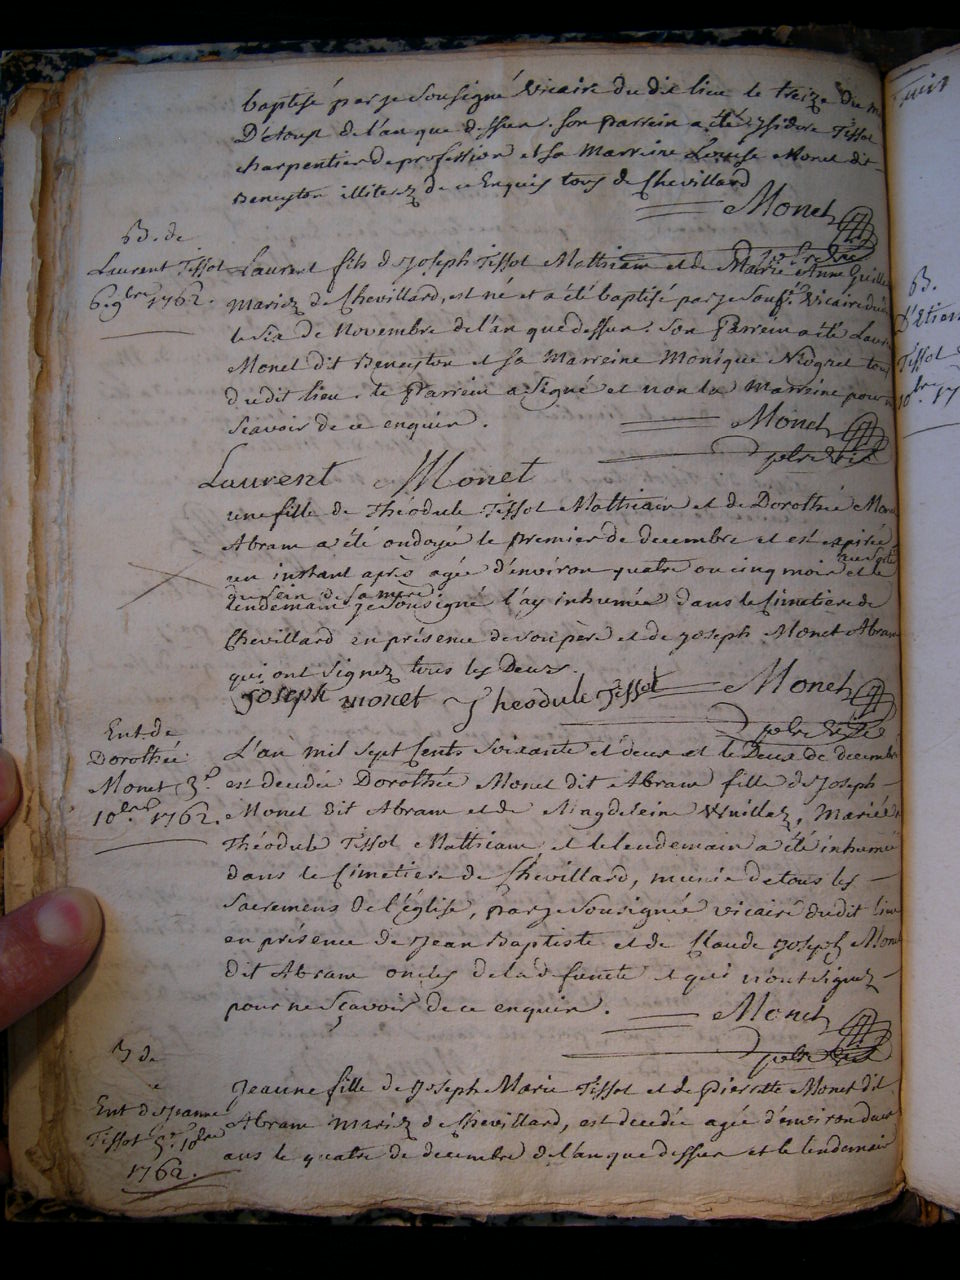 baptisé par je Sousigné Vicaire du dit lieu le treize du
D'étoup de l'an que dessus. son parrein a été ysidore Tissot
charpentier de profession et sa Marreine Louise Monet dit
Beneyton illiterez de ce Enquis tous de Chevillard
Monet
B. de
Laurent Tissot
6. 9bre 1762.
Laurent fils de Joseph Tissot Mathiam et de Marie Anne
Mariez de Chevillard, est né et a été baptisé par je Sousé. Vicaire
le six de Novembre de l'an que dessus. Son Parrein a été
Monet dit Beneyton et sa Marreine Monique Niogret tous
du dit lieu. le Parrein a signé et non la Marreine pour
Scavoir de ce enquise.
Monet
Laurent Monet
une fille de Théodule Tissot Mathiam et de Dorothée
Abram a été ondoyée le premier de decembre et est expirée
un instant après agée d'environ quatre ou cinq mois et le
du sein de sa mere
lendemain je Sousigné l'ay inhumée dans le Cimetiere de
Chevillard en présence de son père et de Joseph Monet Abram
qui ont signez tous les Deux.
Joseph monet Theodule Tissot Monet
Ent. de
Dorothée
Monet 3.
10.bre 1762.
L'an mil sept Cents soixante et deux et le Deux de decembre
est decedée Dorothée Monet dit Abram fille de Joseph
Monet dit Abram et de Magdeleine Wuillez, Mariée
Théodule Tissot Mathiam et le lendemain a été inhumée
dans le Cimetiere de Chevillard, munie de tous les
Sacremens de l'église, par je Sousignée vicaire du dit lieu
en présence de Jean Baptiste et de Claude Joseph
dit Abram oncles de la défunte et qui n'ont signez
pour ne Scavoir de ce enquis.
Monet
B de
Ent de Jeanne
Tissot 5. 10bre
1762.
Jeanne fille de Joseph Marie Tissot et de Pierrotte Monet dit
Abram Mariez de Chevillard, est decedée agée d'environ deux
ans le quatre de decembre de l'an que dessus et le lendemain
B.
D'Etien
Tissot
10.bre 17